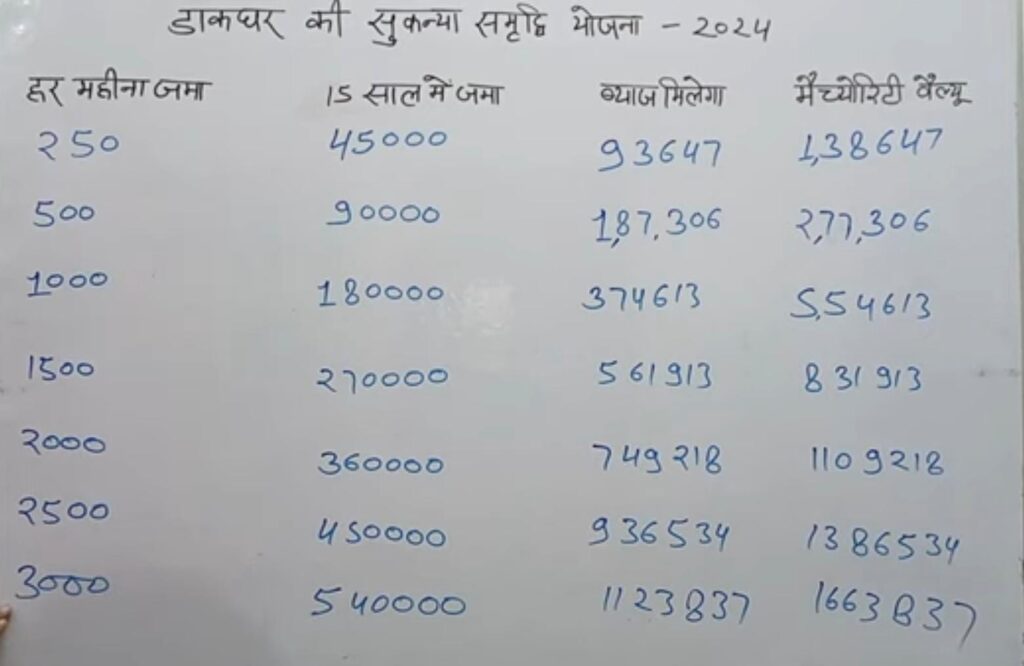 डाकघर की सुकन्या समृद्धि योजना - 2024
हर महीना जमा 15 साल में जमा ब्याज मिलेगा मैच्योरिटी वैल्यू
250 45000 93647 1,38647
500 90000 1,87,306 2,77,306
1000 180000 374613 5,54613
1500 270000 561913 831913
2000 360000 749218 1109218
2500 450000 936534 1386534
3000 540000 1123837 1663837